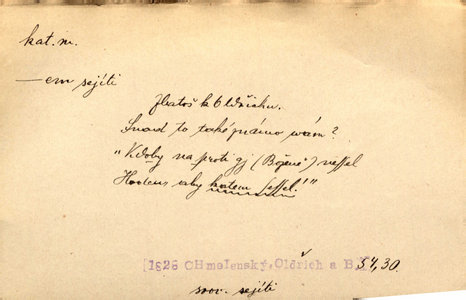 kat. m.
—em sejíti
Zbatoš k Oldřichu.
Snad to také známo wám?
"Kdoby na proti gj (Boženě) nessel
Hodens aby katem sessel!"
[1826 CHmelenský, Oldřich a B.] 54,30
srov. sejíti